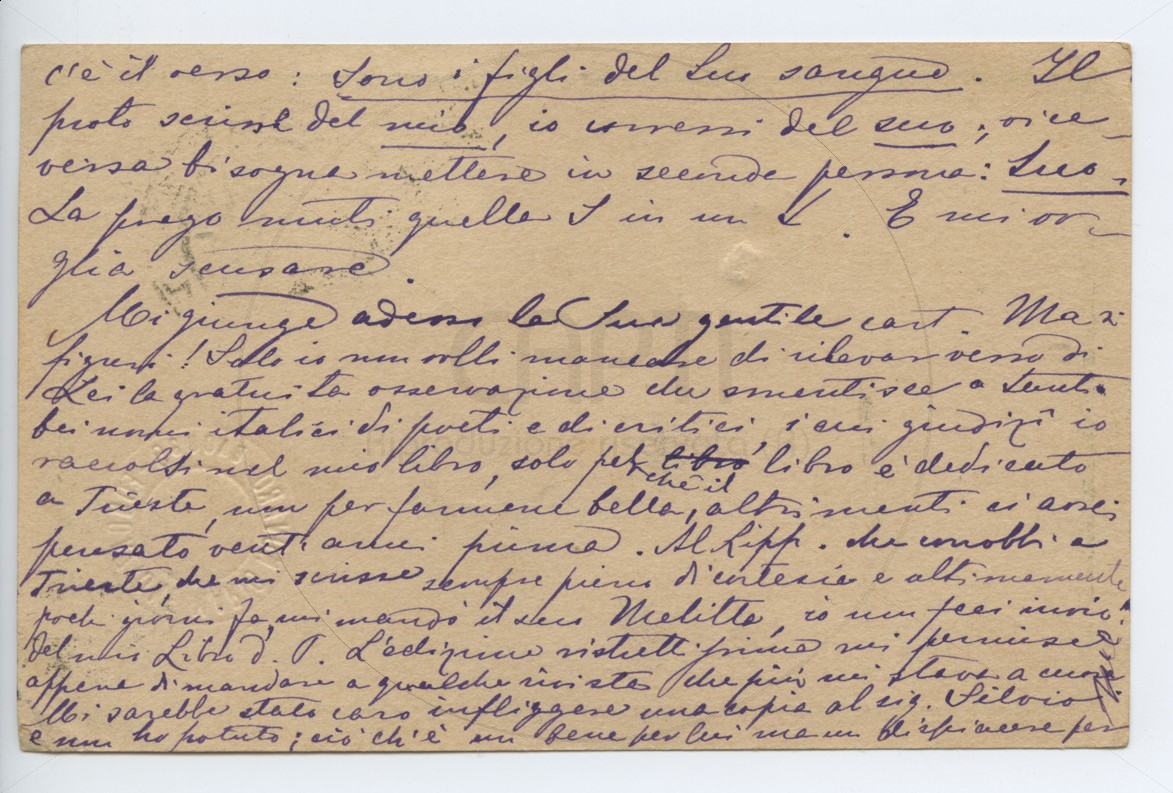 c'è il verso: Sono i figli del Suo sangue. Il
proto scrisse del mio, io corressi del suo; vice-
versa bisogna mettere in seconda persona: Suo.
La prego muti quella s in un S. E mi vo-
glia scusare.
Mi giunge adesso la Sua gentile cart. Ma si
figuri! Solo io non volli mancare di rilevar verso di
Lei la gratuita osservazione che smentisce a tanti
bei nomi italici di poeti e di critici, i cui giudizî io
raccolsi nel mio libro, solo perchè il libro è dedicato
a Trieste, non per farmene bello, altrimenti ci avrei
pensato venti anni prima. Al Lipp. che conobbi a
Trieste, che mi scrisse sempre pieno di cortesia e ultimamente
pochi giorni fa, mi mandò il suo Melitta, io non feci invio
del mio Libro d. T. L'edizione ristrettissima mi permise
appena di mandare a qualche rivista che più mi stava a cuore
Mi sarebbe stato caro infliggere una copia al sig. Silvio
e non ho potuto; ciò ch'è un bene per lui ma un dispiacere per
me